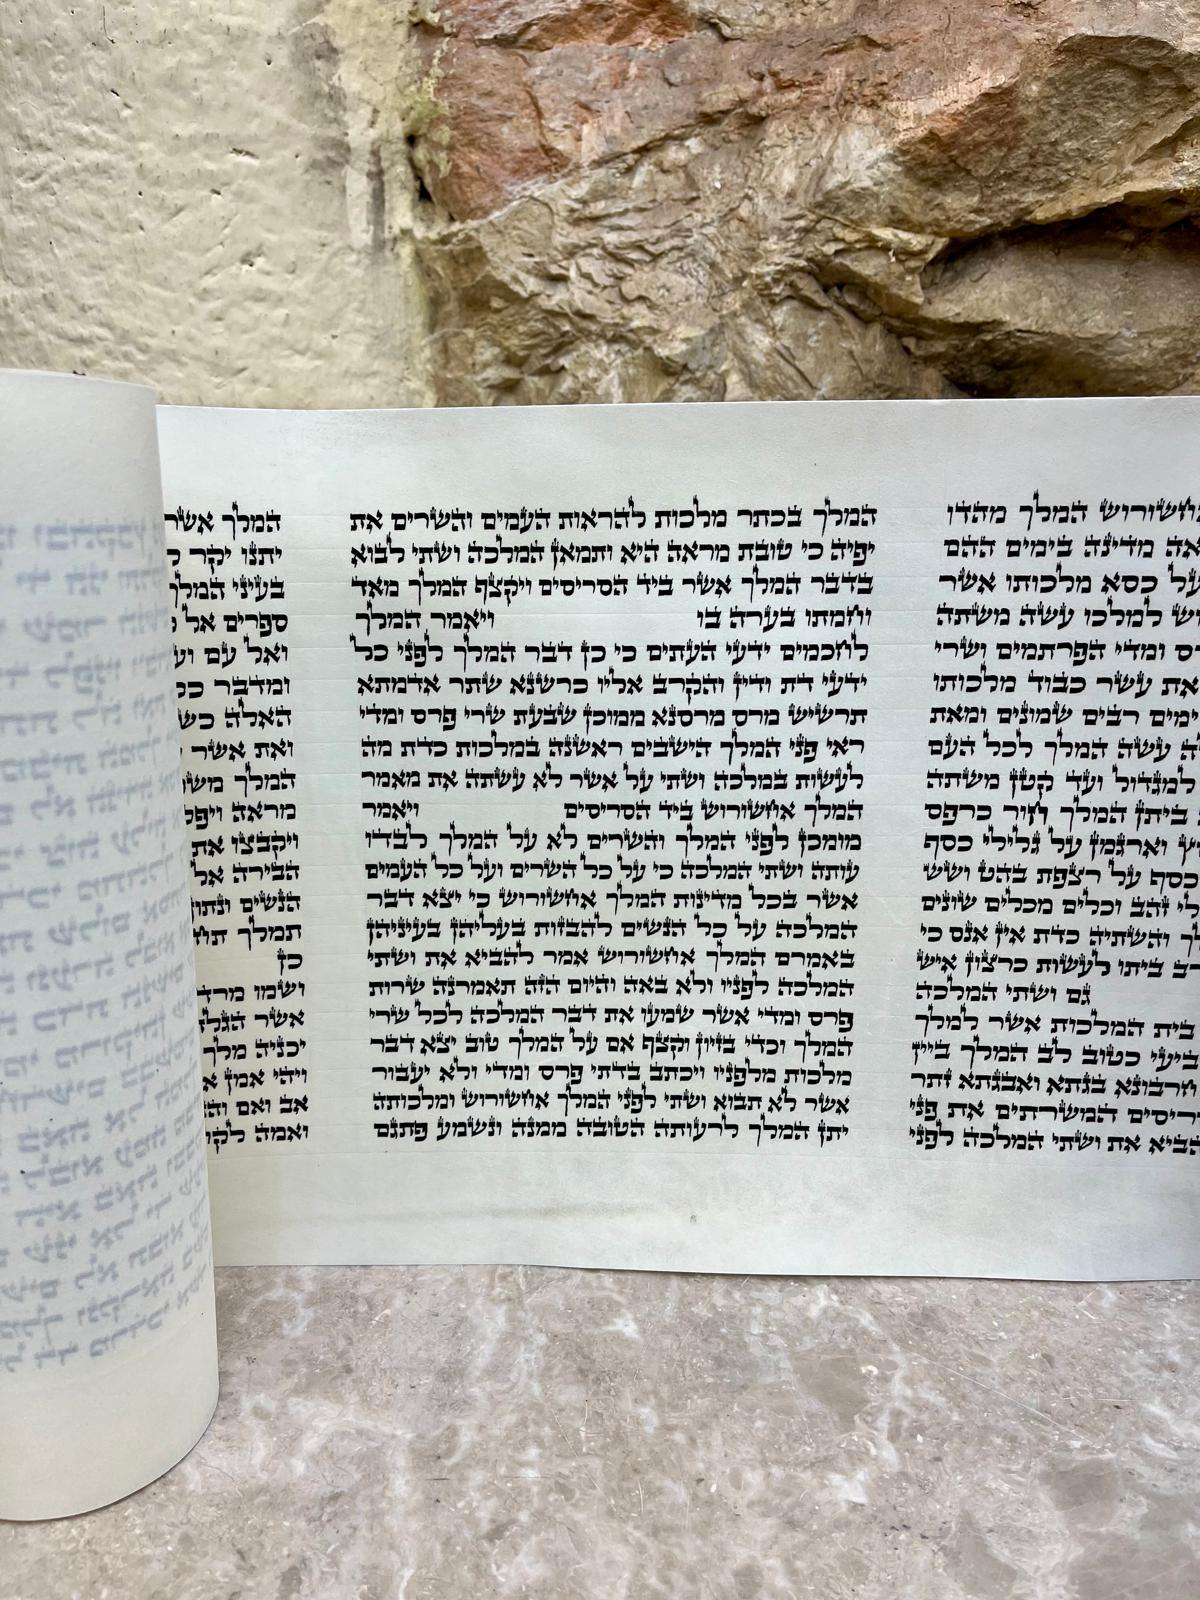 המלך מהדו
מדינה בימים ההם
על כסא מלכותו אשר
למלכו עשה משתה
ומדי הפרתמים ושרי
את עשר כבוד מלכותו
ימים רבים שמונים ומאת
עשה המלך לכל העם
למגדול ועד קטן משתה
ביתן המלך חור כרפס
וארגמן על גלילי כסף
כסף על רצפת בהט ושש
זהב וכלים מכלים שונים
והשתיה כדת אין אנס כי
ביתו לעשות כרצון איש
גם ושתי המלכה
בית המלכות אשר למלך
כטוב לב המלך ביין
חרבונא בגתא ואבגתא זתר
המשרתים את פני
את ושתי המלכה לפני
המלך בכתר מלכות להראות העמים והשרים את
יפיה כי טובת מראה היא ותמאן המלכה ושתי לבוא
בדבר המלך אשר ביד הסריסים ויקצף המלך מאד
וחמתו בערה בו ויאמר המלך
לחכמים ידעי העתים כי כן דבר המלך לפני כל
ידעי דת ודין והקרב אליו כרשנא שתר אדמתא
תרשיש מרס מרסנא ממוכן שבעת שרי פרס ומדי
ראי פני המלך הישבים ראשנה במלכות כדת מה
לעשות במלכה ושתי על אשר לא עשתה את מאמר
המלך אחשורוש ביד הסריסים ויאמר
מומכן לפני המלך והשרים לא על המלך לבדו
עותה ושתי המלכה כי על כל השרים ועל כל העמים
אשר בכל מדינות המלך אחשורוש כי יצא דבר
המלכה על כל הנשים להבזות בעליהן בעיניהן
באמרם המלך אחשורוש אמר להביא את ושתי
המלכה לפניו ולא באה והיום הזה תאמרנה שרות
פרס ומדי אשר שמעו את דבר המלכה לכל שרי
המלך וכדי בזיון וקצף אם על המלך טוב יצא דבר
מלכות מלפניו ויכתב בדתי פרס ומדי ולא יעבור
אשר לא תבוא ושתי לפני המלך אחשורוש ומלכותה
יתן המלך לרעותה הטובה ממנה ונשמע פתגם
המלך אשר
יתנו יקר
בעיני המלך
ספרים אל
ואל עם
ומדבר
האלה
ואת אשר
המלך
מראה
ויקבצו את
הבירה אל
הנשים
תמלך
כן
ושמו
אשר
יכניה מלך
ויהי אמן
אב ואם
ואמה